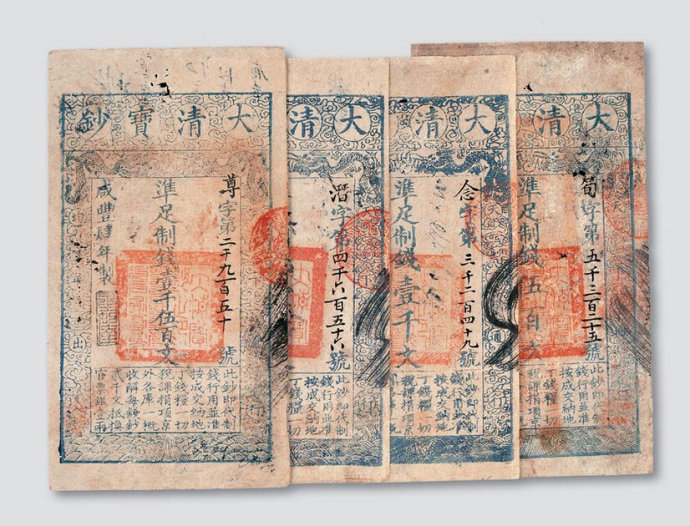 大清寶鈔
尊字第二千九百五十號
準足制錢壹千伍百文
咸豐肆年製
此鈔即代制
錢行用並准
按成交納地
丁錢糧一切
稅課捐項京
外各庫一概
收解每錢鈔
貳千文抵換
官票銀壹兩
大清
潛字第四千六百五十六號
此鈔即代制
錢行用並准
按成交納地
丁錢糧一切
大清
念字第三千二百四十九號
準足制錢壹千文
此鈔即代制
錢行用並准
按成交納地
丁錢糧一切
稅課捐項京
大清
荀字第五千三百二十五號
準足制錢伍百文
此鈔即代制
錢行用並准
按成交納地
丁錢糧一切
稅課捐項京